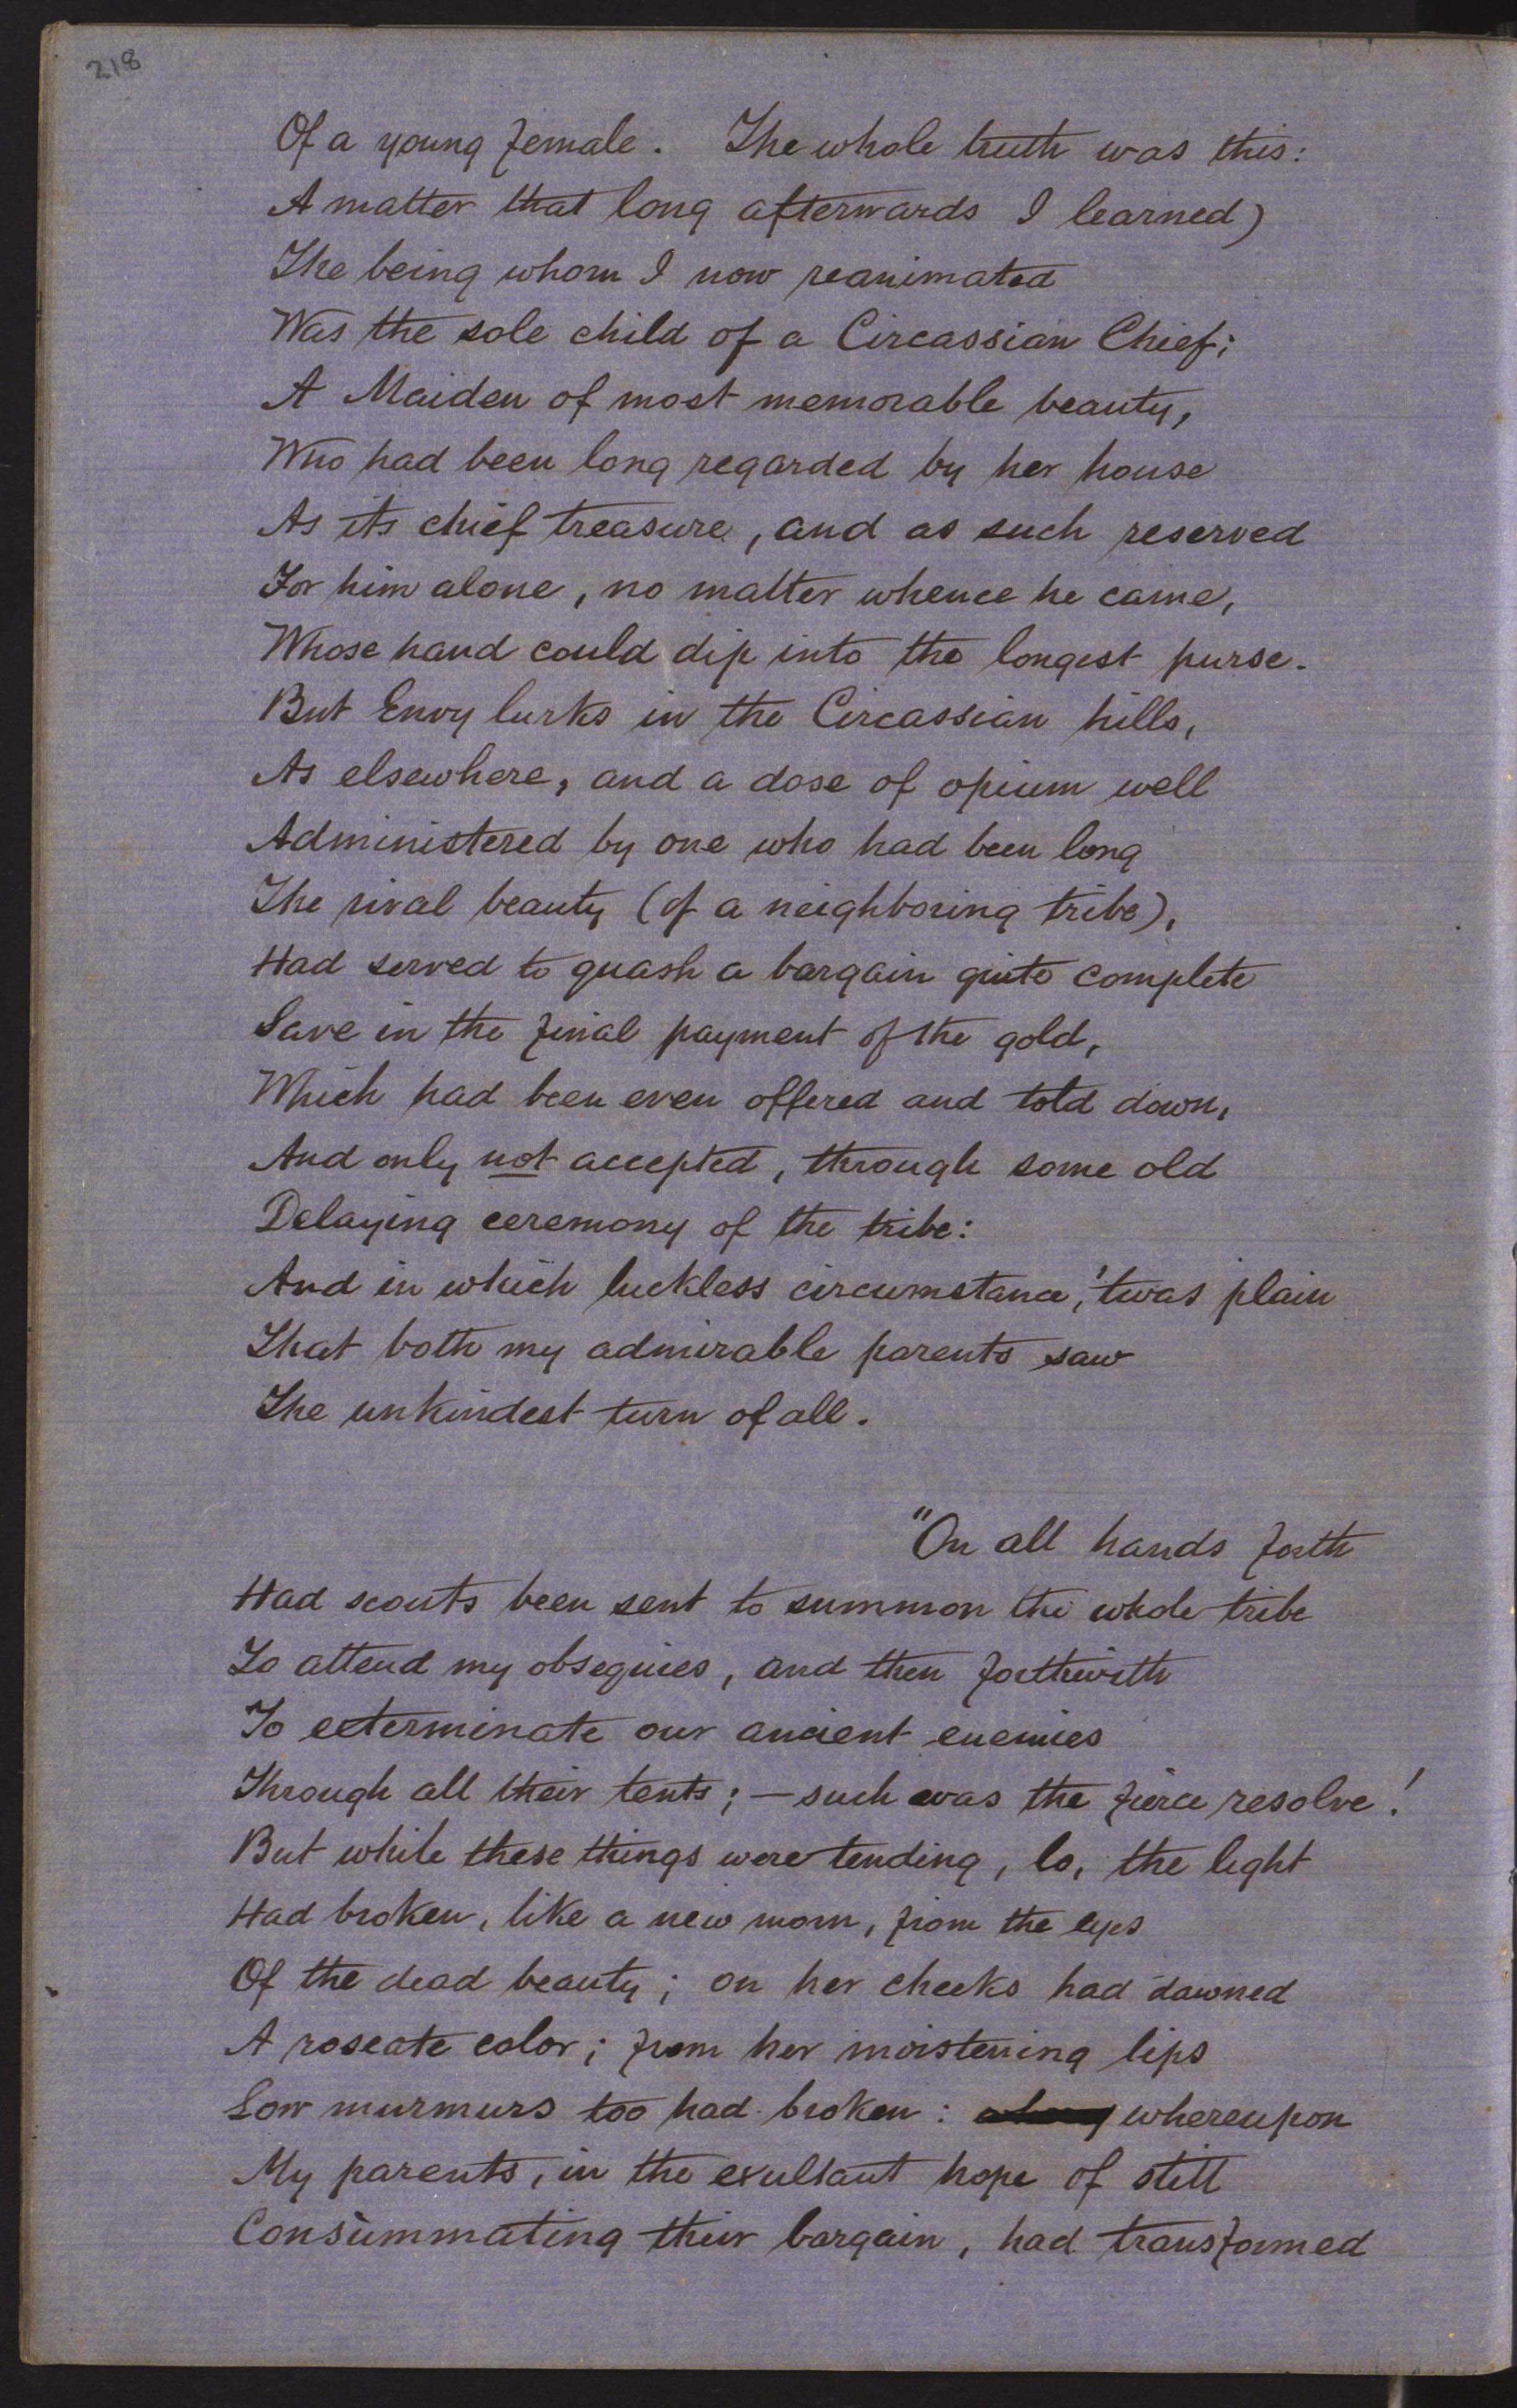 218
Of a young female. The whole truth was this:
A matter that long afterwards I learned)
The being whom I now reanimated
Was the sole child of a Circassian Chief;
A Maiden of most memorable beauty,
Who had been long regarded by her house
As its chief treasure, and as such reserved
For him alone, no matter whence he came,
Whose hand could dip into the longest purse.
But Envy lurks in the Circassian hills,
As elsewhere, and a dose of opium well
Administered by one who had been long
The rival beauty (of a neighboring tribe),
Had served to quash a bargain quite complete
Save in the final payment of the gold,
Which had been even offered and told down,
And only not accepted, through some old
Delaying ceremony of the tribe:
And in which luckless circumstance, 'twas plain
That both my admirable parents saw
The unkindest turn of all.
"On all hands forth
Had scouts been sent to summon the whole tribe
To attend my obsequies, and then forthwith
To exterminate our ancient enemies
Through all their tents; — such was the fierce resolve!
But while these things were tending, lo, the light
Had broken, like a new morn, from the eyes
Of the dead beauty; on her cheeks had dawned
A roseate color; from her moistening lips
Low murmurs too had broken: whereupon
My parents, in the exultant hope of still
Consummating their bargain, had transformed